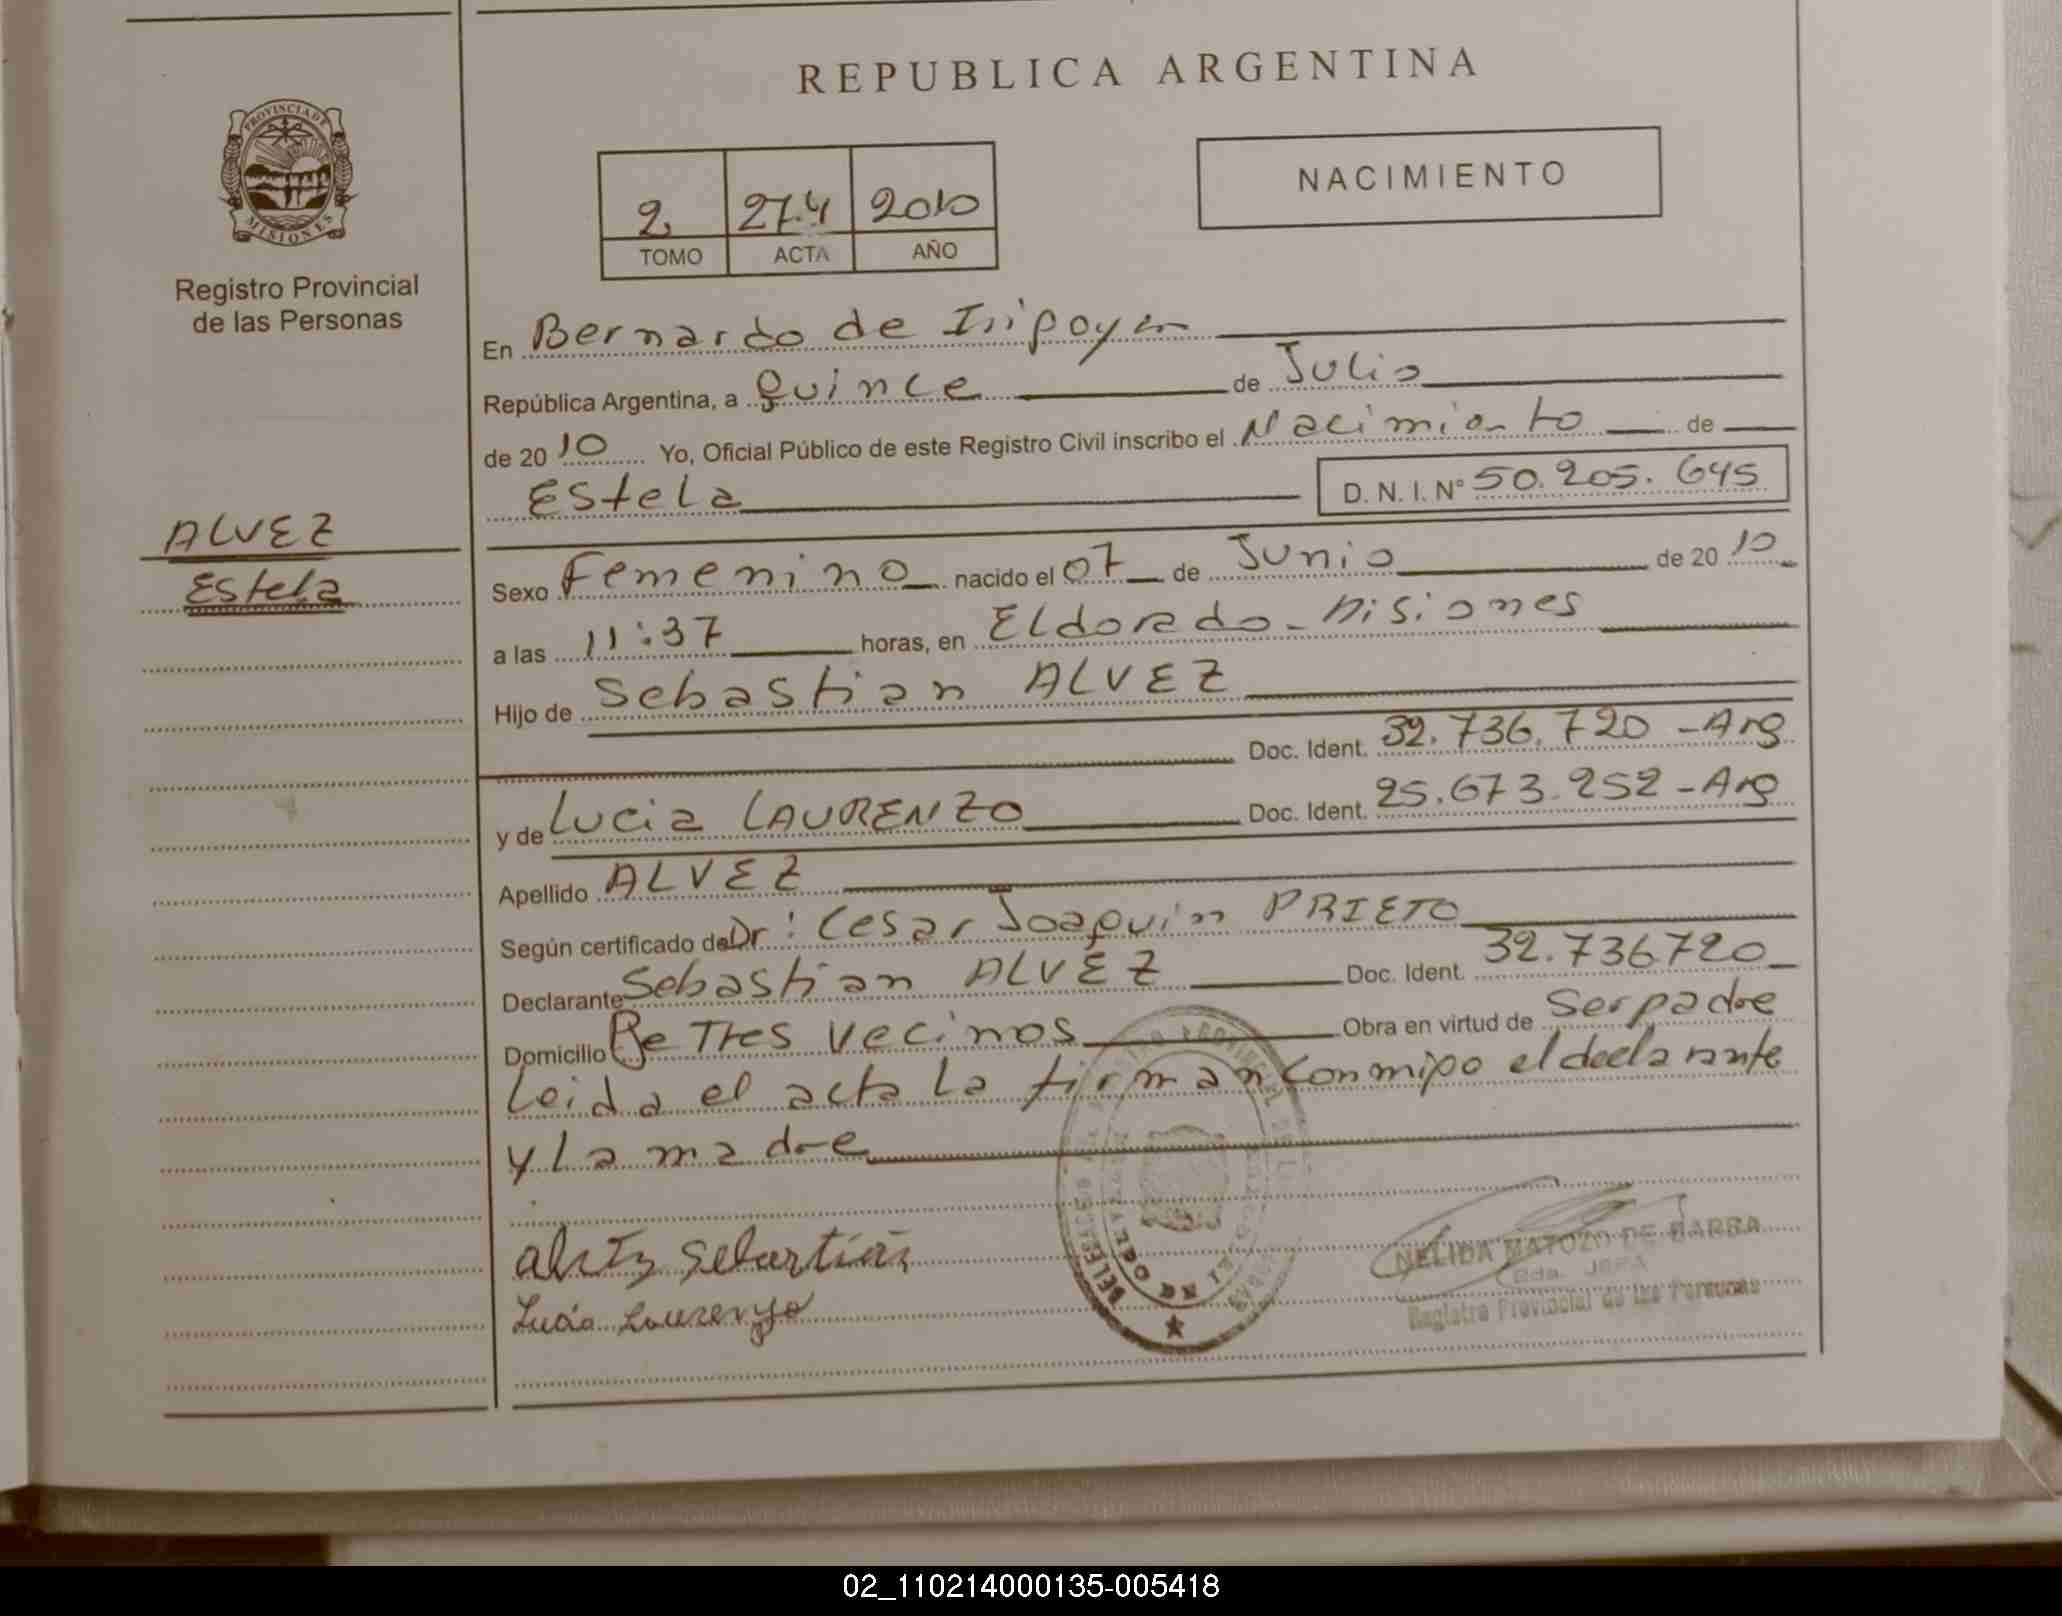 REPUBLICA ARGENTINA
PROVINCIA DE MISIONES
Registro Provincial
de las Personas
2 274 2010
TOMO ACTA AÑO
NACIMIENTO
En Bernardo de Irigoyen
República Argentina, a quince de Julio
de 2010 Yo, Oficial Público de este Registro Civil inscribo el Nacimiento de
Estela D. N. I. Nº 50.205.645
ALVEZ
Estela
Sexo Femenino nacido el 07 de Junio de 2010
a las 11:37 horas, en Eldorado - Misiones
Hijo de Sebastian ALVEZ
Doc. Ident. 32.736.720 - Arg
y de Lucia LAURENZO Doc. Ident. 25.673.252 - Arg
Apellido ALVEZ
Según certificado de Dr: Cesar Joaquin PRIETO
Declarante Sebastian ALVEZ Doc. Ident. 32.736720
Domicilio Pje Tres vecinos Obra en virtud de ser padre
Leida el acta La firman conmigo el declarante
y La madre
Sebastian
NELIDA MATOZO DE BARBA
Lucia Laurenzo
JEFA
Registro Provincial de las Personas
02_110214000135-005418